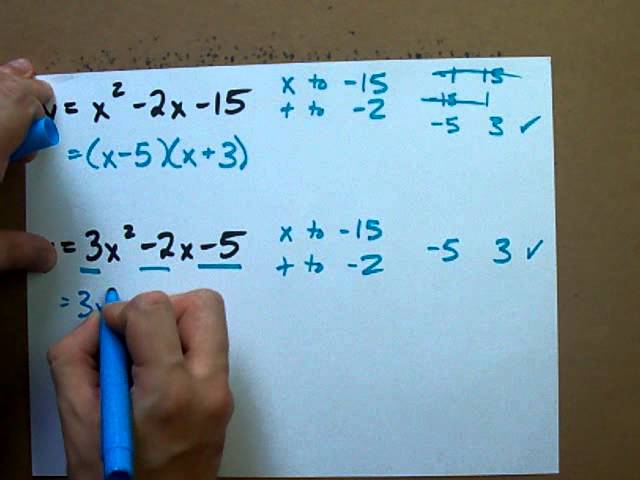 y = x² - 2x - 15
x to -15
+ to -2
-1 15
-15 1
-5 3 ✓
= (x - 5)(x + 3)
= 3x² - 2x - 5
x to -15
+ to -2
-5 3 ✓
= 3x